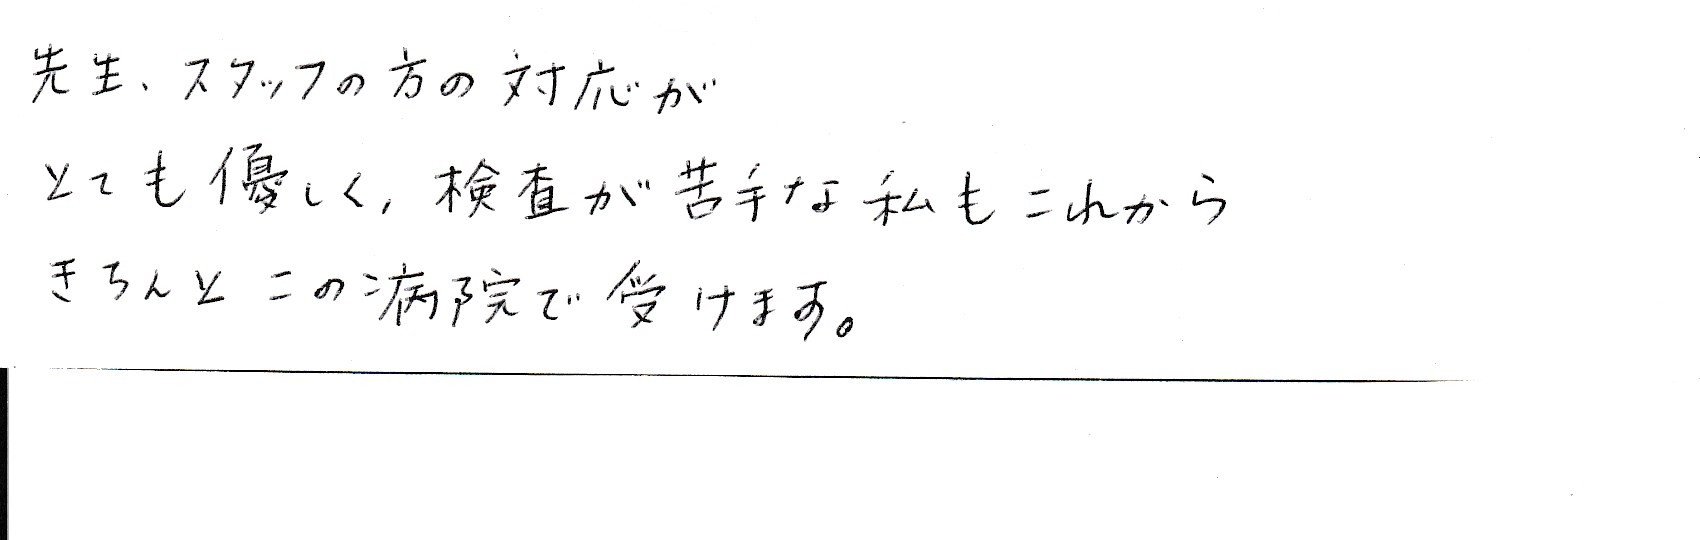 先生、スタッフの方の対応が
とても優しく、検査が苦手な私もこれから
きちんとこの病院で受けます。